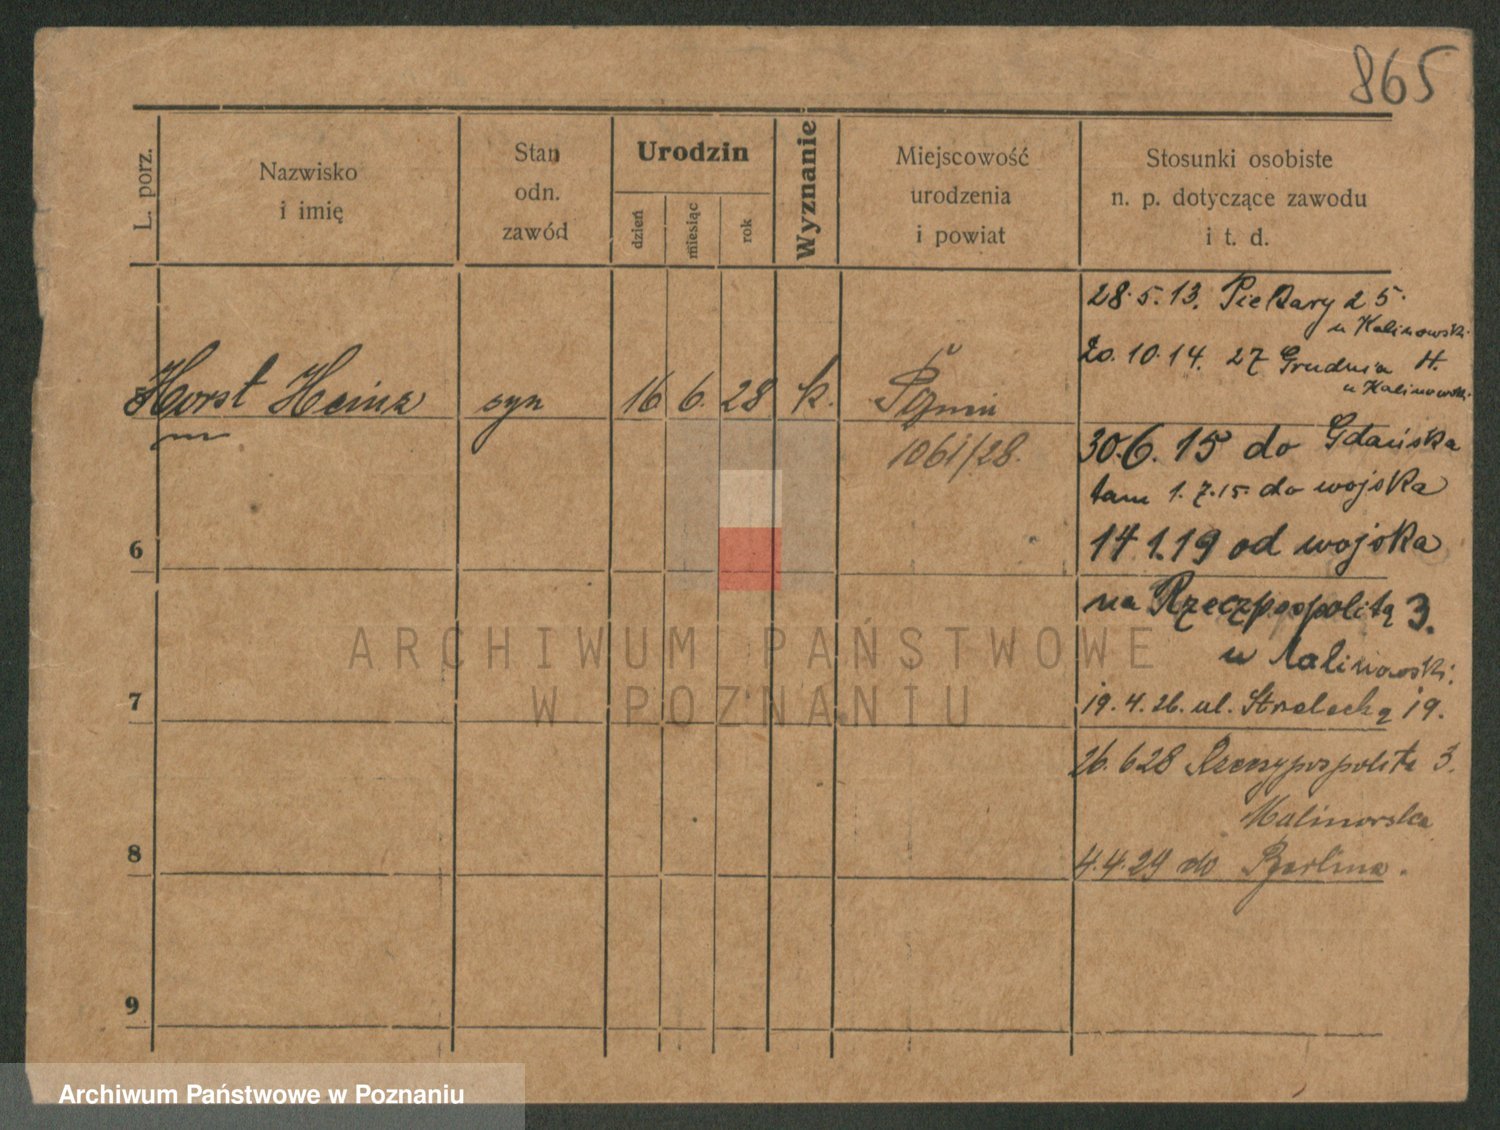 865
L. porz.
Nazwisko
i imię
Stan
odn.
zawód
Urodzin
dzień
miesiąc
rok
Wyznanie
Miejscowość
urodzenia
i powiat
Stosunki osobiste
n. p. dotyczące zawodu
i t. d.
5 Horst Heinz syn 16 6. 28 k.
1061/28.
28.5.13. Piekary 25.
u Kalinowski.
20.10.14. 27 Grudnia H.
u Kalinowski.
30.6.15 do Gdańska
tam 1.7.15 do wojska
14 1.19 od wojska
na Rzeczpospolitą 3.
u Kalinowski.
19.4.26. ul. Strzelecką 19.
26.6 28 Rzeczypospolita 3.
4.4.29 do Berlina.
6
7
8
9
ARCHIWUM PAŃSTWOWE
W POZNANIU
Archiwum Państwowe w Poznaniu